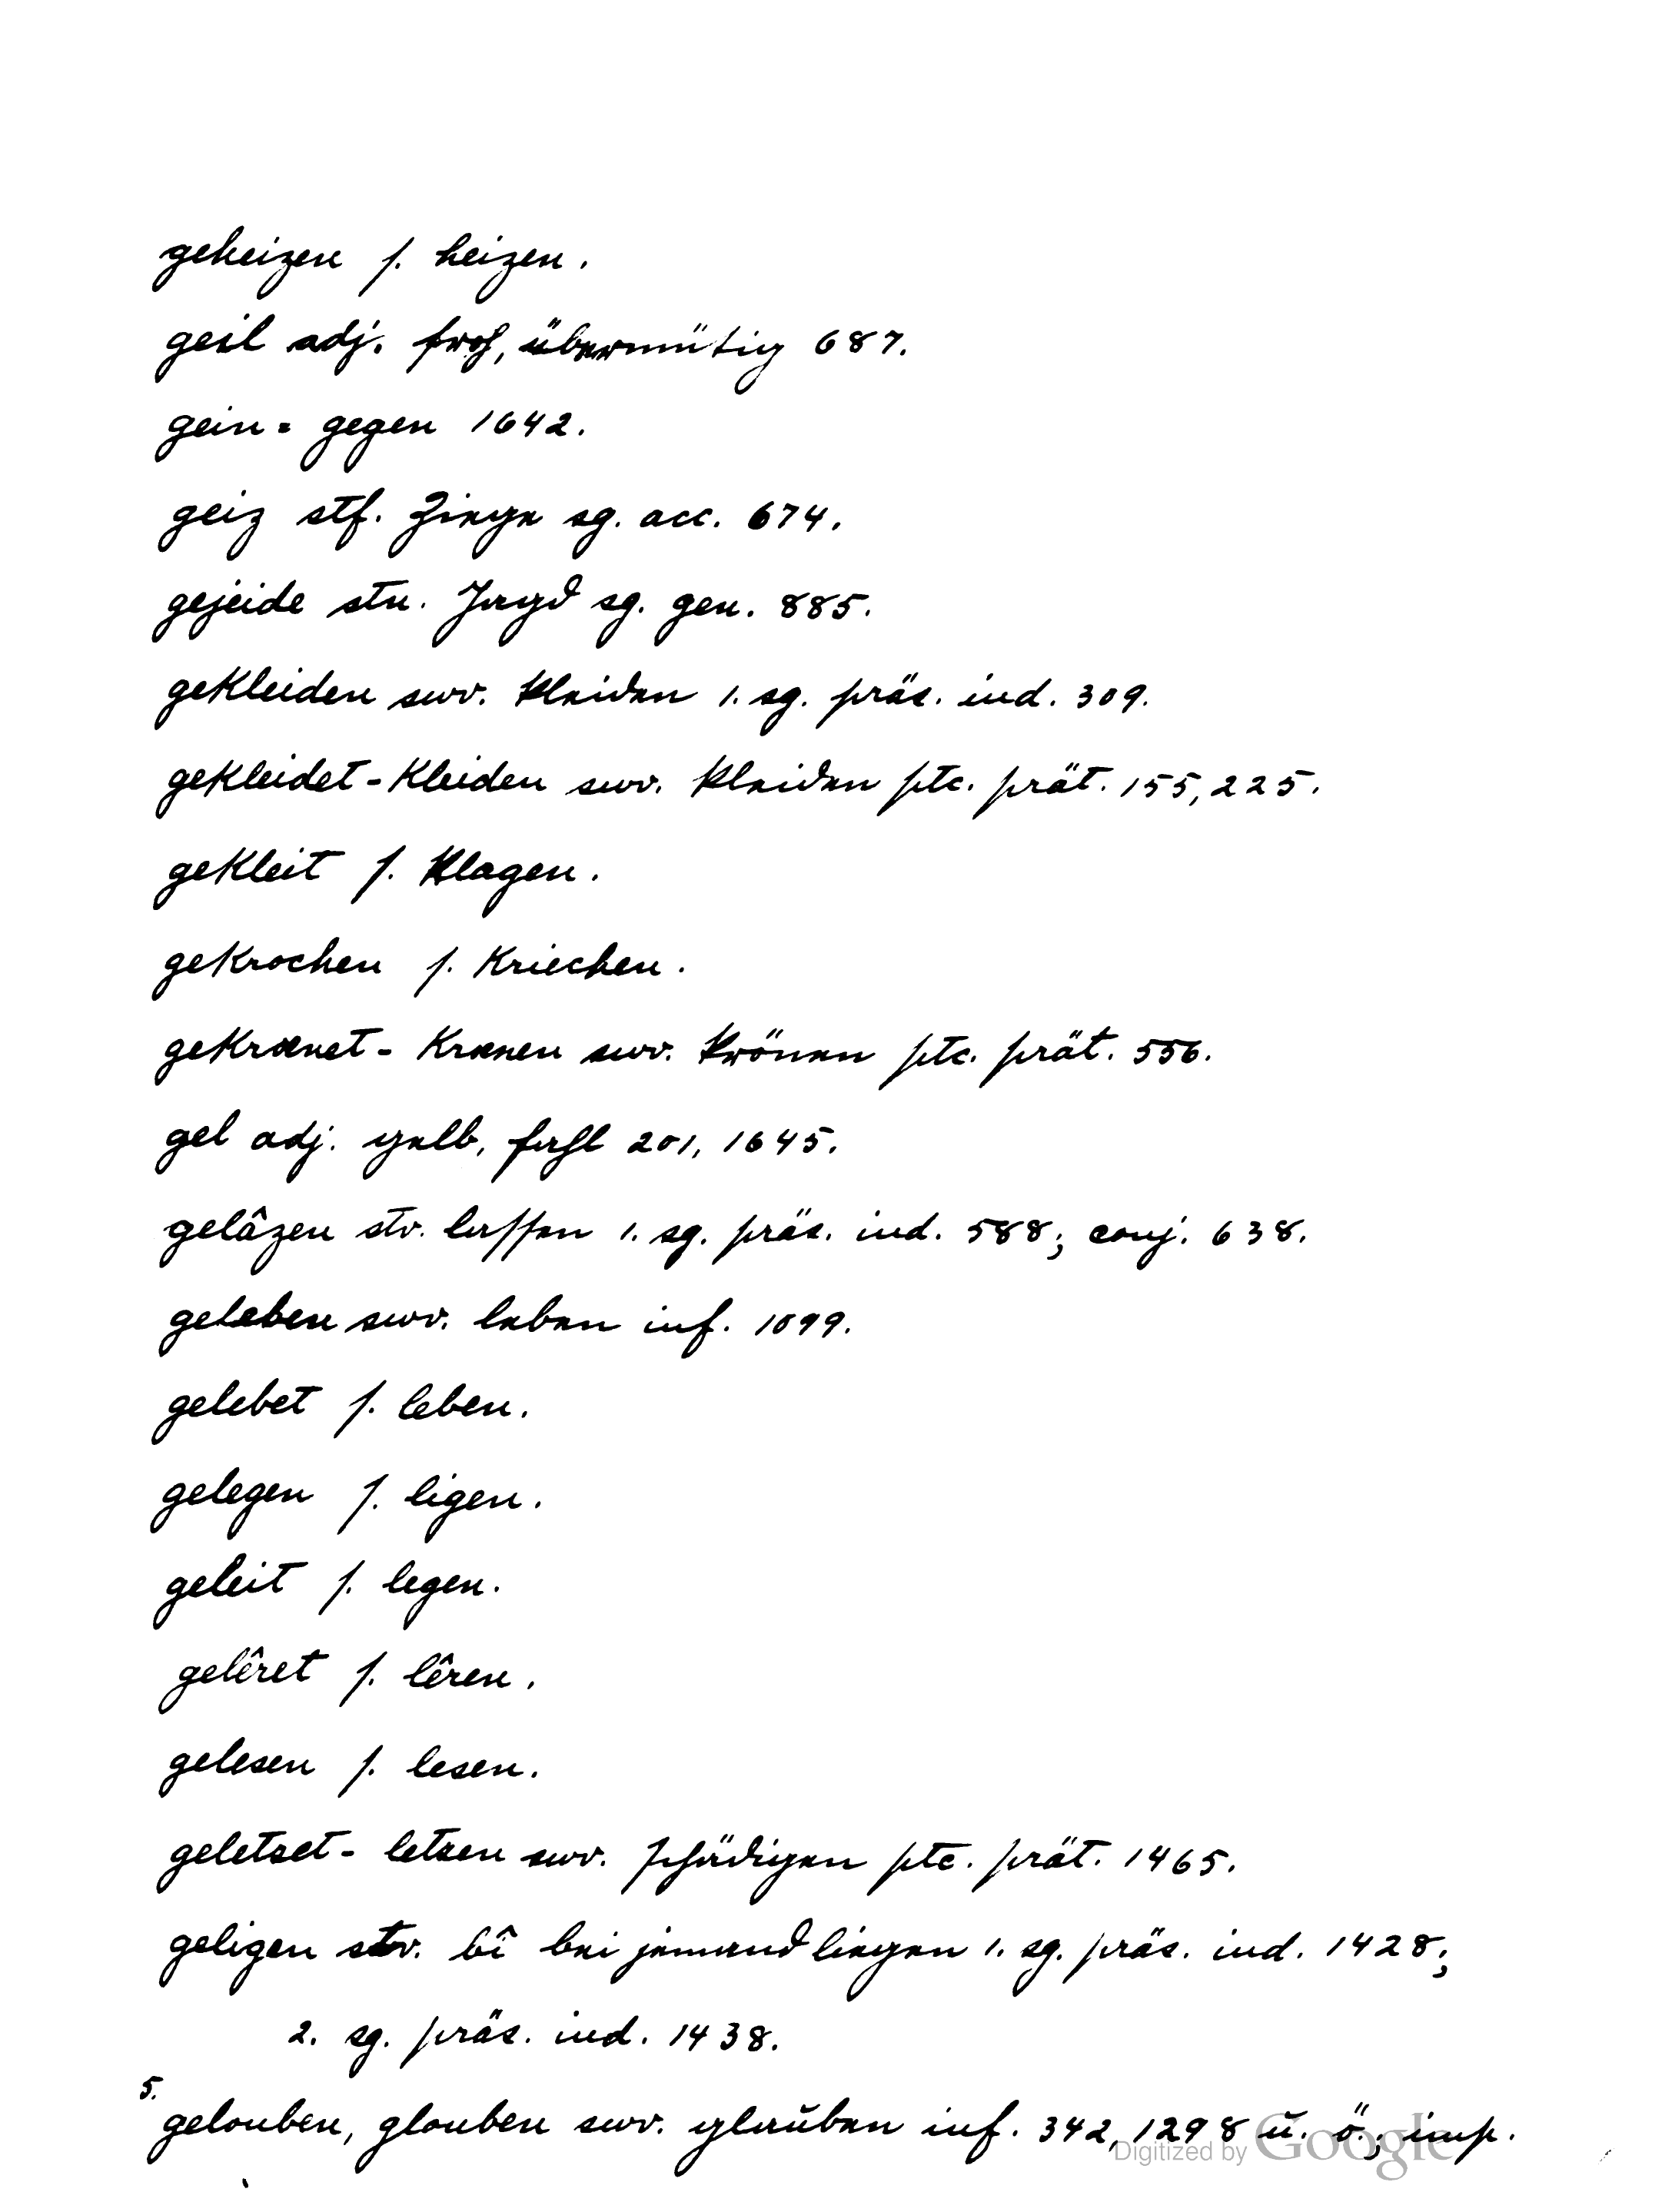 geheizen s. heizen.
geil adj. froh, übermütig 687.
gein = gegen 1642.
geiz stf. Ziege sg. acc. 674.
gejeide stn. Jagd sg. gen. 885.
gekleiden swv. kleiden 1. sg. präs. ind. 309.
gekleidet - kleiden swv. kleiden ptc. prät. 155, 225.
gekleit s. klagen.
gekrochen s. kriechen.
gekrœnet - krœnen swv. krönen ptc. prät. 556.
gel adj. gelb, fahl 201, 1645.
gelâzen stv. lassen 1. sg. präs. ind. 588; conj. 638.
geleben swv. leben inf. 1099.
gelebet s. leben.
gelegen s. ligen.
geleit s. legen.
gelêret s. lêren.
gelesen s. lesen.
geletzet - letzen swv. schädigen ptc. prät. 1465.
geligen stv. bî bei jemand liegen 1. sg. präs. ind. 1428;
2. sg. präs. ind. 1438.
5.
gelouben, glouben swv. glauben inf. 342, 1298 u. ö.; imp.
Digitized by Google